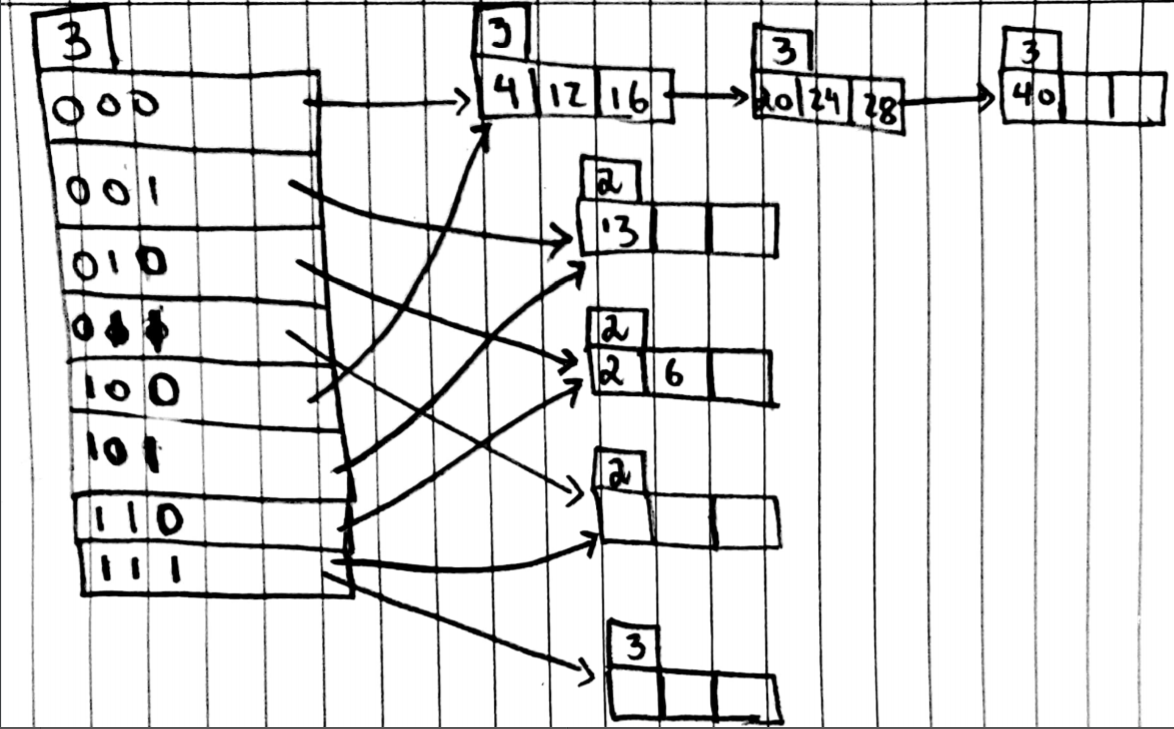 3
000
001
010
0
100
101
110
111
3
4 12 16
3
20 24 28
3
40
2
13
2
2 6
2
3